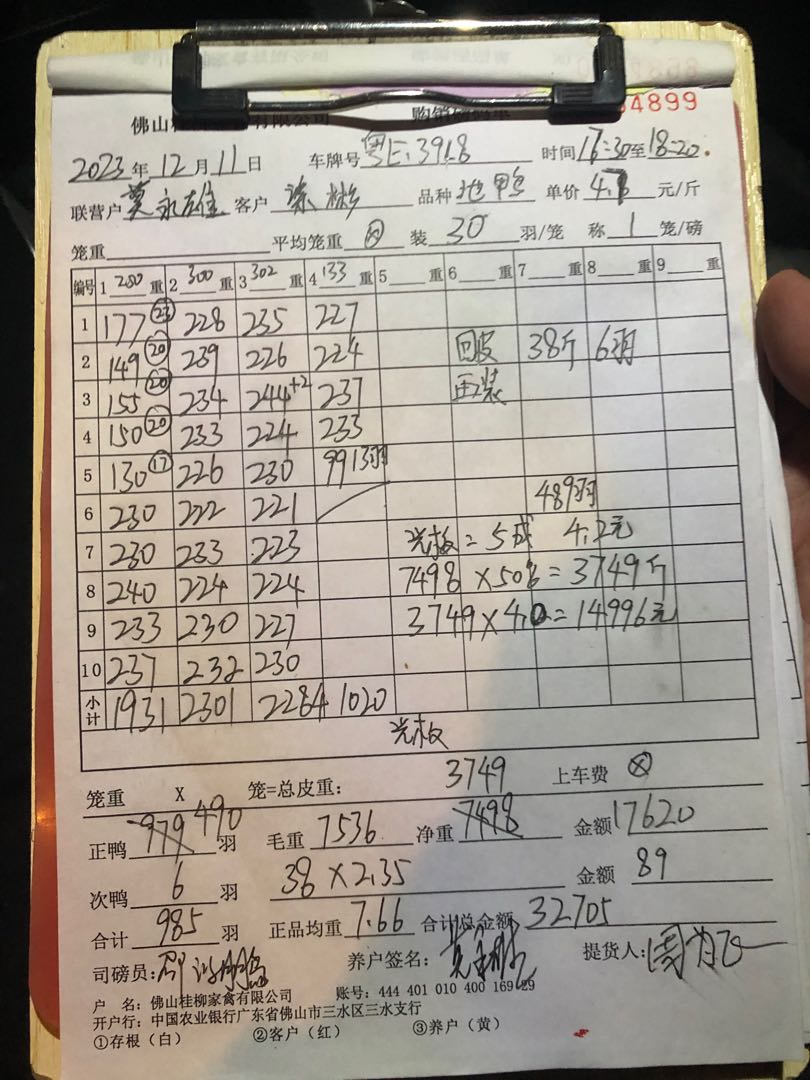 佛山桂柳家禽有限公司 购销
4899
2023年12月11日 车牌号 粤E:3918 时间17:30至18:20.
联营户 莫永雄 客户 品种 单价 4.7 元/斤
笼重 平均笼重 ⊗ 装 30 羽/笼 称 1 笼/磅
编号 1 200 重 2 300 重 3 302 重 4 133 重 5 重 6 重 7 重 8 重 9 重
1 177 ㉓ 228 235 227
2 149 ⑳ 239 226 224 回皮 38斤 6羽
3 155 ⑳ 234 244+2 237 再装
4 150 ⑳ 233 224 233
5 130 ⑰ 226 230 99 13羽
6 230 222 221 489羽
7 230 233 223 光板=5成 4.2元
8 240 224 224 7498×50%=3749斤
9 233 230 227 3749×4.0=14996元
10 237 232 230
小计 1931 2301 2284 1020
光板
笼重 X 笼=总皮重: 3749 上车费 ⊗
正鸭 979 490 羽 毛重 7536 净重 7498 金额 17620
次鸭 6 羽 38×2.35 金额 89
合计 985 羽 正品均重 7.66 合计总金额 32705
司磅员: 养户签名: 提货人:
户 名: 佛山桂柳家禽有限公司 账号: 444 401 010 400 169 29
开户行: 中国农业银行广东省佛山市三水区三水支行
①存根(白) ②客户(红) ③养户(黄)